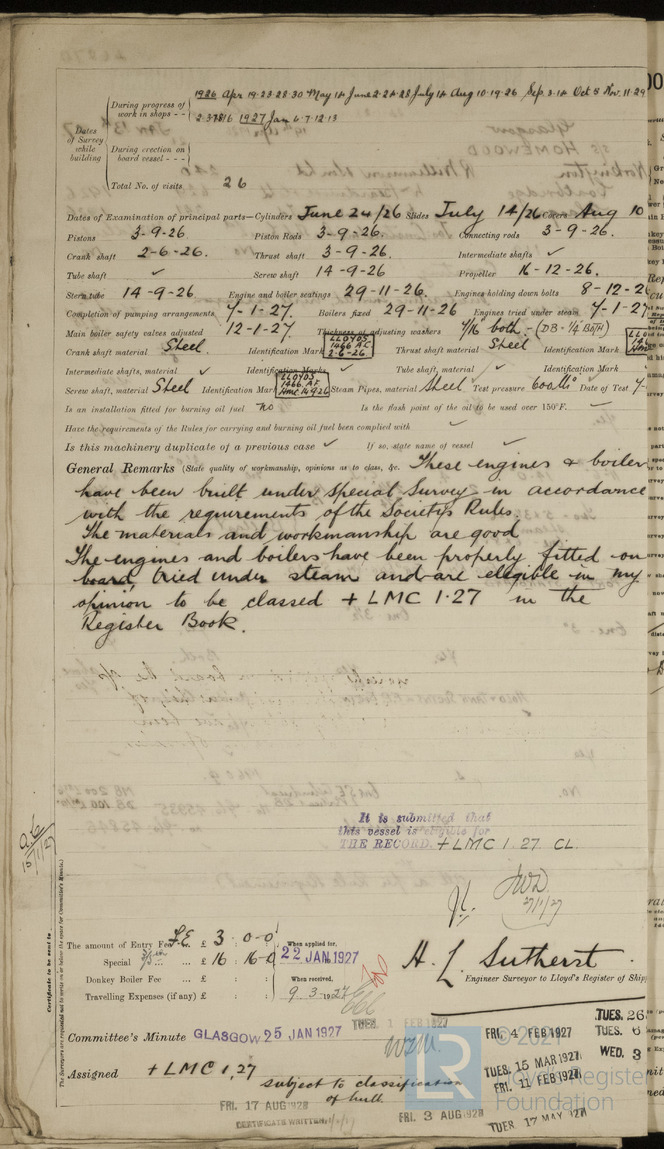 1926 Apr 19-23-28-30 May 14 June 2-24-28 July 14 Aug 10-19-26 Sep. 3-14 Oct 8 Nov. 11-29
During progress of work in shops - -
1927 Jan 6-7-12-13
Dates of Survey while building
During erection on board vessel - - -
Total No. of visits 26
Dates of Examination of principal parts—Cylinders June 24/26 Slides July 14/26 Covers Aug 10
Pistons 3-9-26 Piston Rods 3-9-26. Connecting rods 3-9-26.
Crank shaft 2-6-26. Thrust shaft 3-9-26. Intermediate shafts ✓
Tube shaft ✓ Screw shaft 14-9-26 Propeller 16-12-26.
Stern tube 14-9-26 Engine and boiler seatings 29-11-26. Engines holding down bolts 8-12-26
Completion of pumping arrangements 7-1-27. Boilers fixed 29-11-26 Engines tried under steam 7-1-27
Main boiler safety valves adjusted 12-1-27. Thickness of adjusting washers 7/16 both - (DB - 1/4 BOTH)
Crank shaft material Steel Identification Mark LLOYDS 1466 A.F. 2-6-26 Thrust shaft material Steel Identification Mark
Intermediate shafts, material ✓ Identification Marks ✓ Tube shaft, material ✓ Identification Mark
Screw shaft, material Steel Identification Mark LLOYDS 1466. A.F. 14.9.26 Steam Pipes, material Steel Test pressure 600 lbs Date of Test
Is an installation fitted for burning oil fuel no Is the flash point of the oil to be used over 150°F.
Have the requirements of the Rules for carrying and burning oil fuel been complied with
Is this machinery duplicate of a previous case ✓ If so, state name of vessel ✓
General Remarks (State quality of workmanship, opinions as to class, &c. These engines & boiler
have been built under special survey in accordance
with the requirements of the Society's Rules.
The materials and workmanship are good
The engines and boilers have been properly fitted on
board, tried under steam and are elegible in my
opinion to be classed + LMC 1·27 in the
Register Book.
It is submitted that
this vessel is eligible for
THE RECORD. + LMC 1.27 CL.
JWD.
27/1/27
Certificate to be sent to
The Surveyors are requested not to write on or below the space for Committee's Minute.
The amount of Entry Fee £ 3 : 0 - 0 When applied for, 22 JAN 1927
Special ... £ 16 : 16-0
Donkey Boiler Fee ... £ : : When received,
Travelling Expenses (if any) £ : : 9.3.1927
H. L. Sutherst.
Engineer Surveyor to Lloyd's Register of Ship
TUES. 1 FEB 1927
FRI. 4 FEB 1927
TUES. 26
TUES. 6
WED. 3
Committee's Minute GLASGOW 25 JAN 1927
TUES. 15 MAR 1927
FRI. 11 FEB 1927
Assigned + LMC 1,27
subject to classification
of hull
FRI. 17 AUG 1928
FRI. 3 AUG 1928
TUES. 17 MAY 1927
CERTIFICATE WRITTEN
LR
© 2021
Lloyd's Register
Foundation